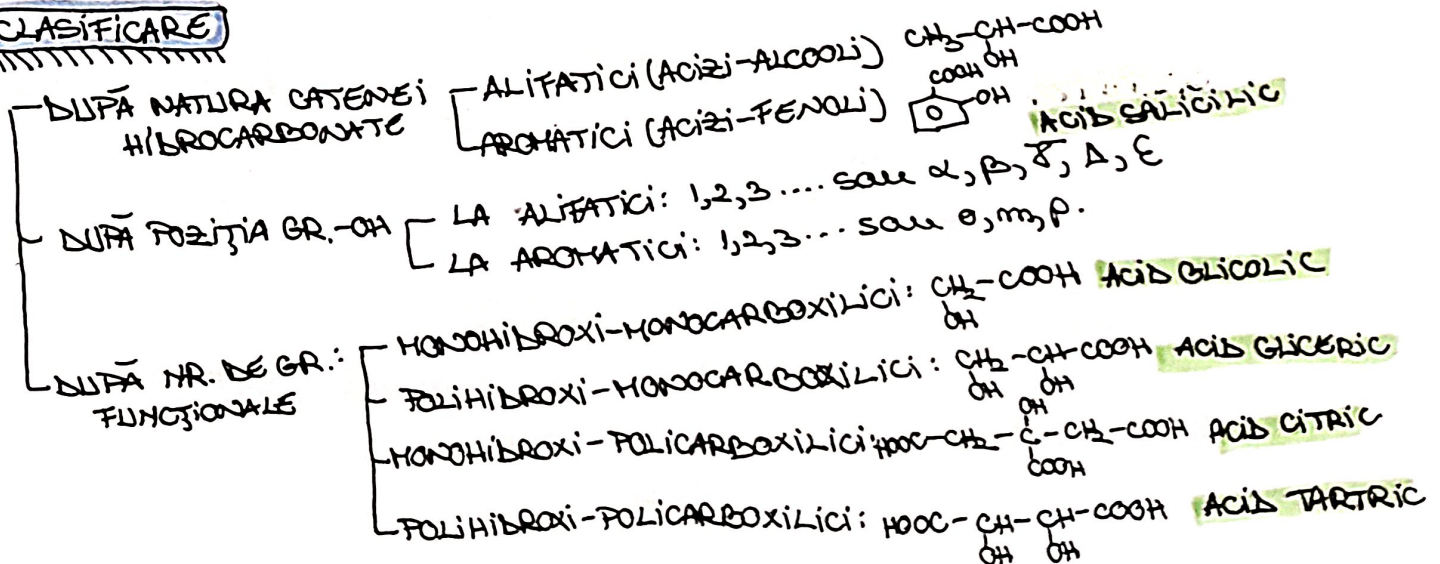 CLASIFICARE
DUPĂ NATURA CATENEI HIDROCARBONATE
ALIFATICI (ACIZI-ALCOOLI) CH3-CH-COOH
OH
AROMATICI (ACIZI-FENOLI) COOH
OH ACID SALICILIC
DUPĂ POZIȚIA GR.-OH
LA ALIFATICI: 1,2,3 .... sau α, β, γ, Δ, ε
LA AROMATICI: 1,2,3... sau o, m, p.
DUPĂ NR. DE GR.: FUNCȚIONALE
MONOHIDROXI-MONOCARBOXILICI: CH2-COOH ACID GLICOLIC
OH
POLIHIDROXI-MONOCARBOXILICI: CH2-CH-COOH ACID GLICERIC
OH OH
OH
MONOHIDROXI-POLICARBOXILICI: HOOC-CH2-C-CH2-COOH ACID CITRIC
COOH
POLIHIDROXI-POLICARBOXILICI: HOOC-CH-CH-COOH ACID TARTRIC
OH OH